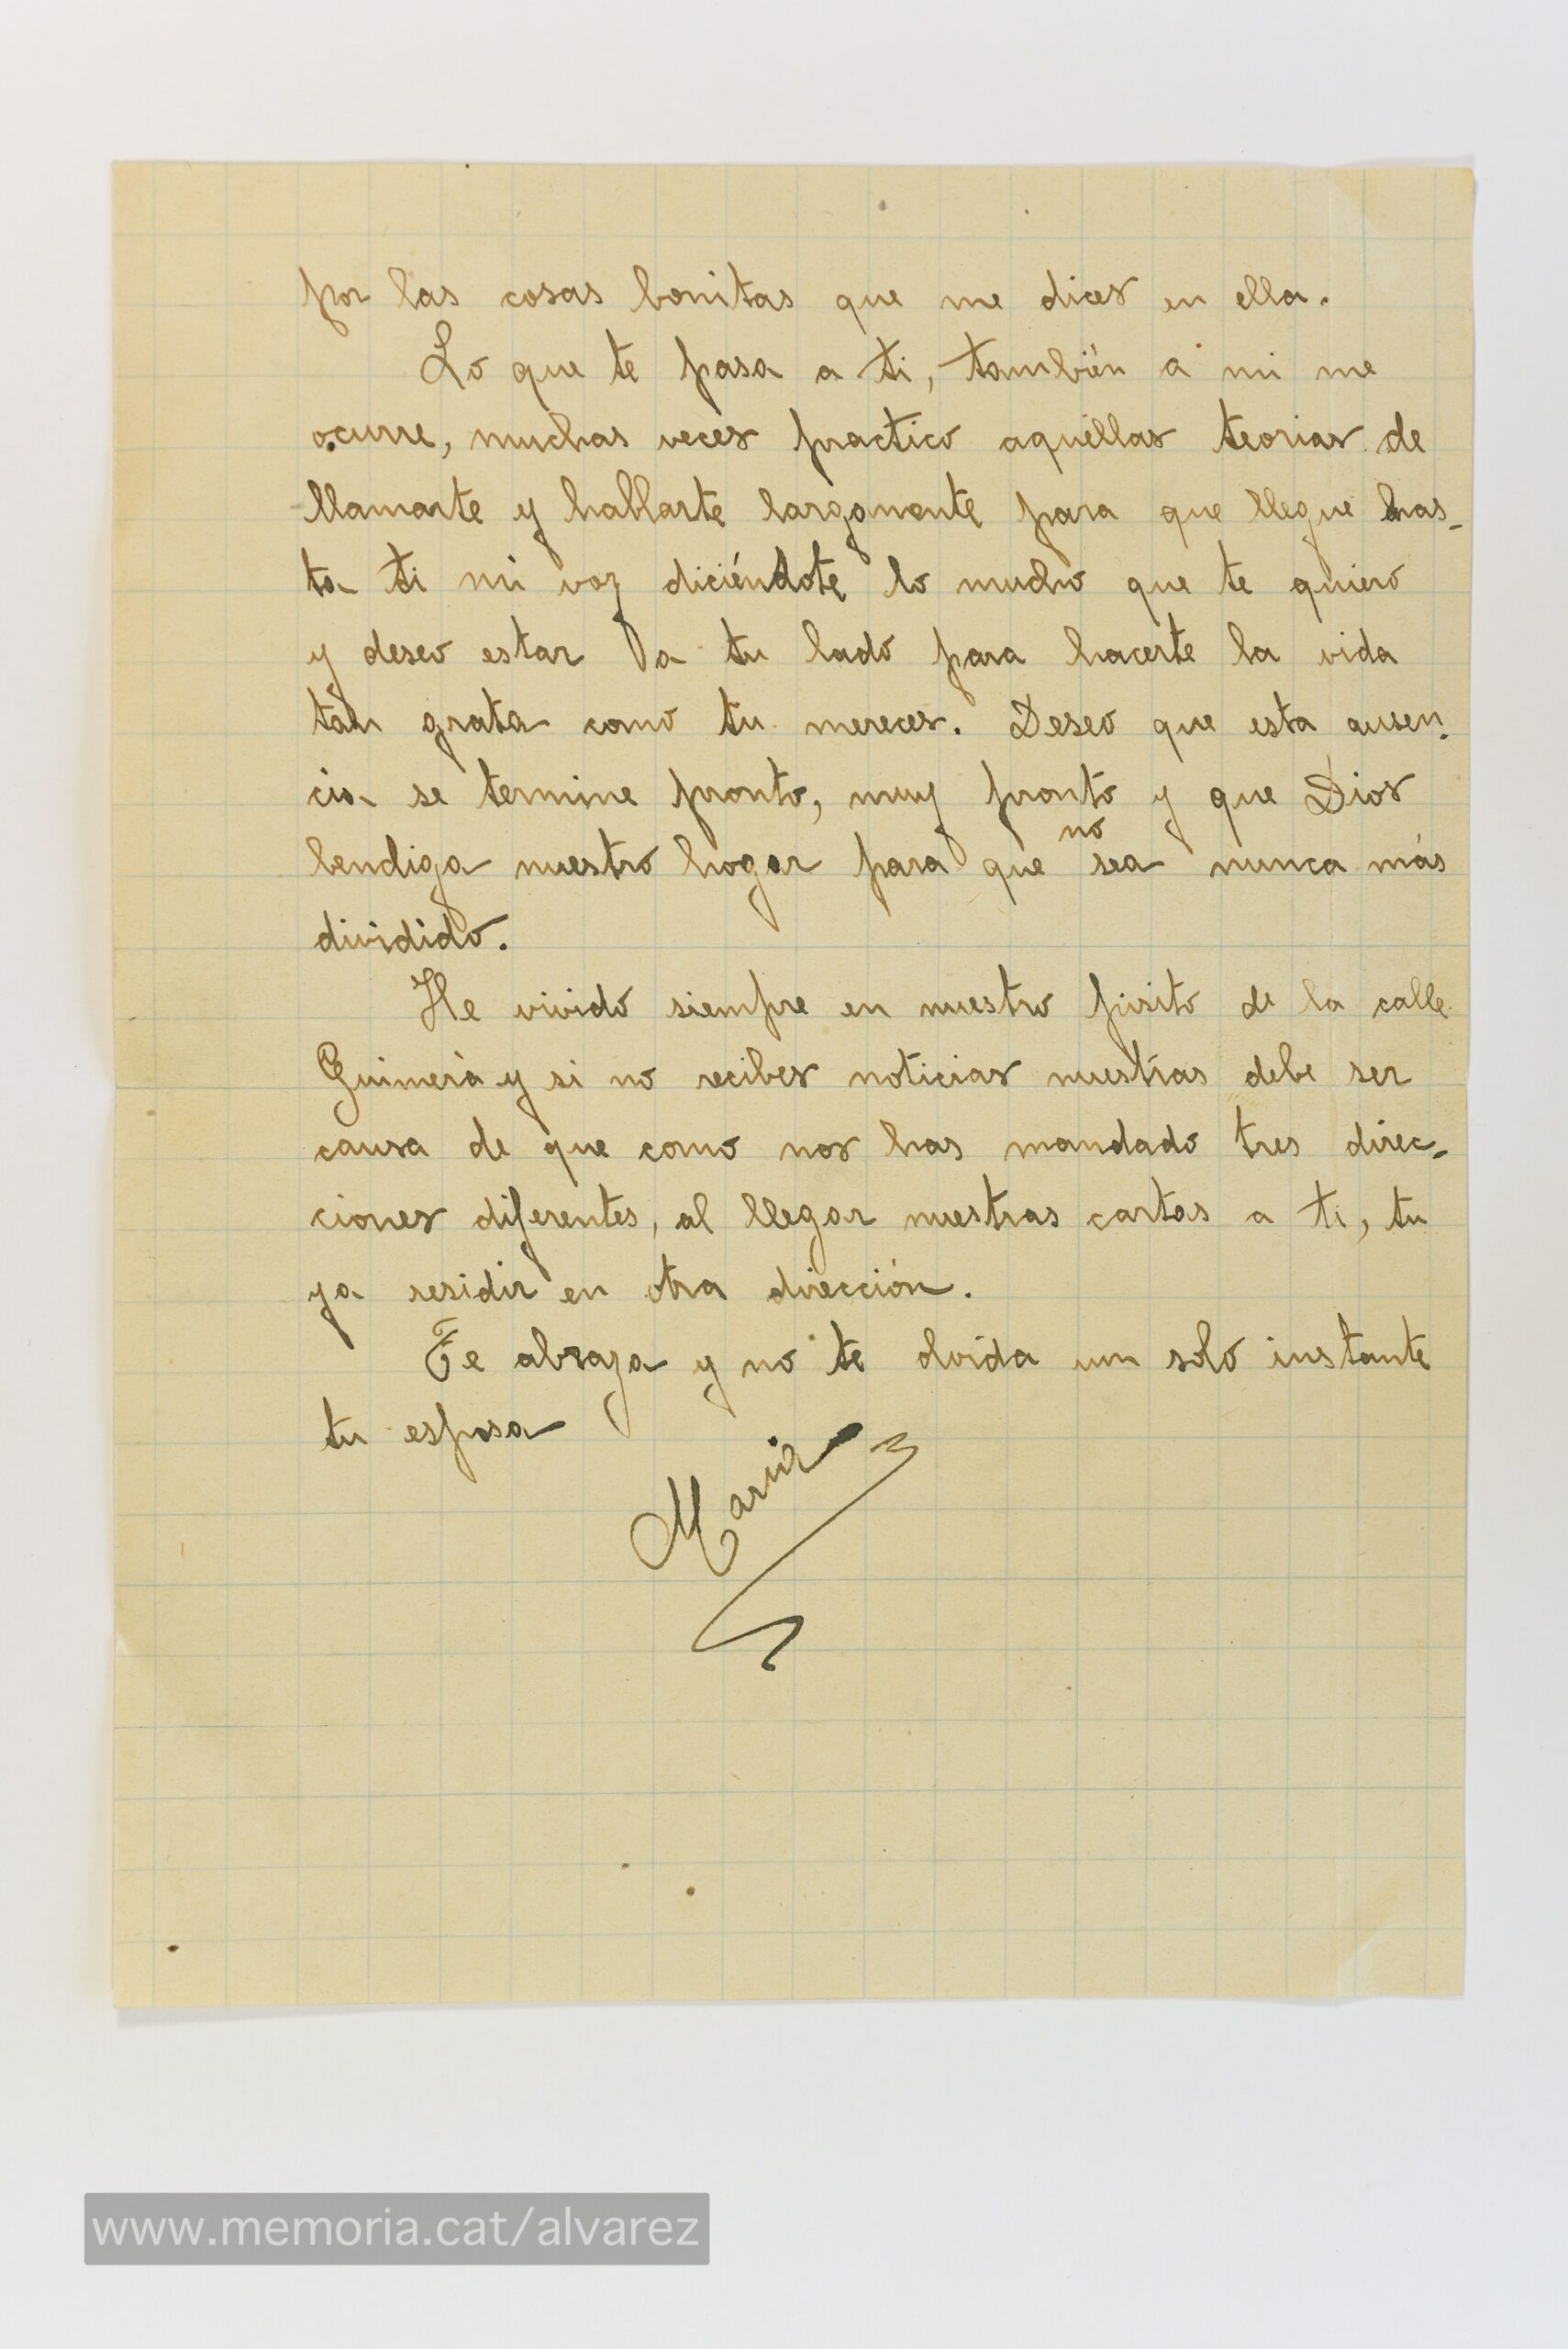 por las cosas bonitas que me dices en ella.
Lo que te pasa a ti, también a mi me
ocurre, muchas veces practico aquellas teorias de
llamarte y hablarte largamente para que llegue has-
ta ti mi voz diciéndote lo mucho que te quiero
y deseo estar a tu lado para hacerte la vida
tan grata como tu mereces. Deseo que esta ausen-
cia se termine pronto, muy pronto y que Dios
bendiga nuestro hogar para que no sea nunca más
dividido.
He vivido siempre en nuestro pisito de la calle
Guimerà y si no recibes noticias nuestras debe ser
causa de que como nos has mandado tres direc-
ciones diferentes, al llegar nuestras cartas a ti, tu
ya residir en otra dirección.
Te abraza y no te olvida un solo instante
tu esposa
Maria
www.memoria.cat/alvarez